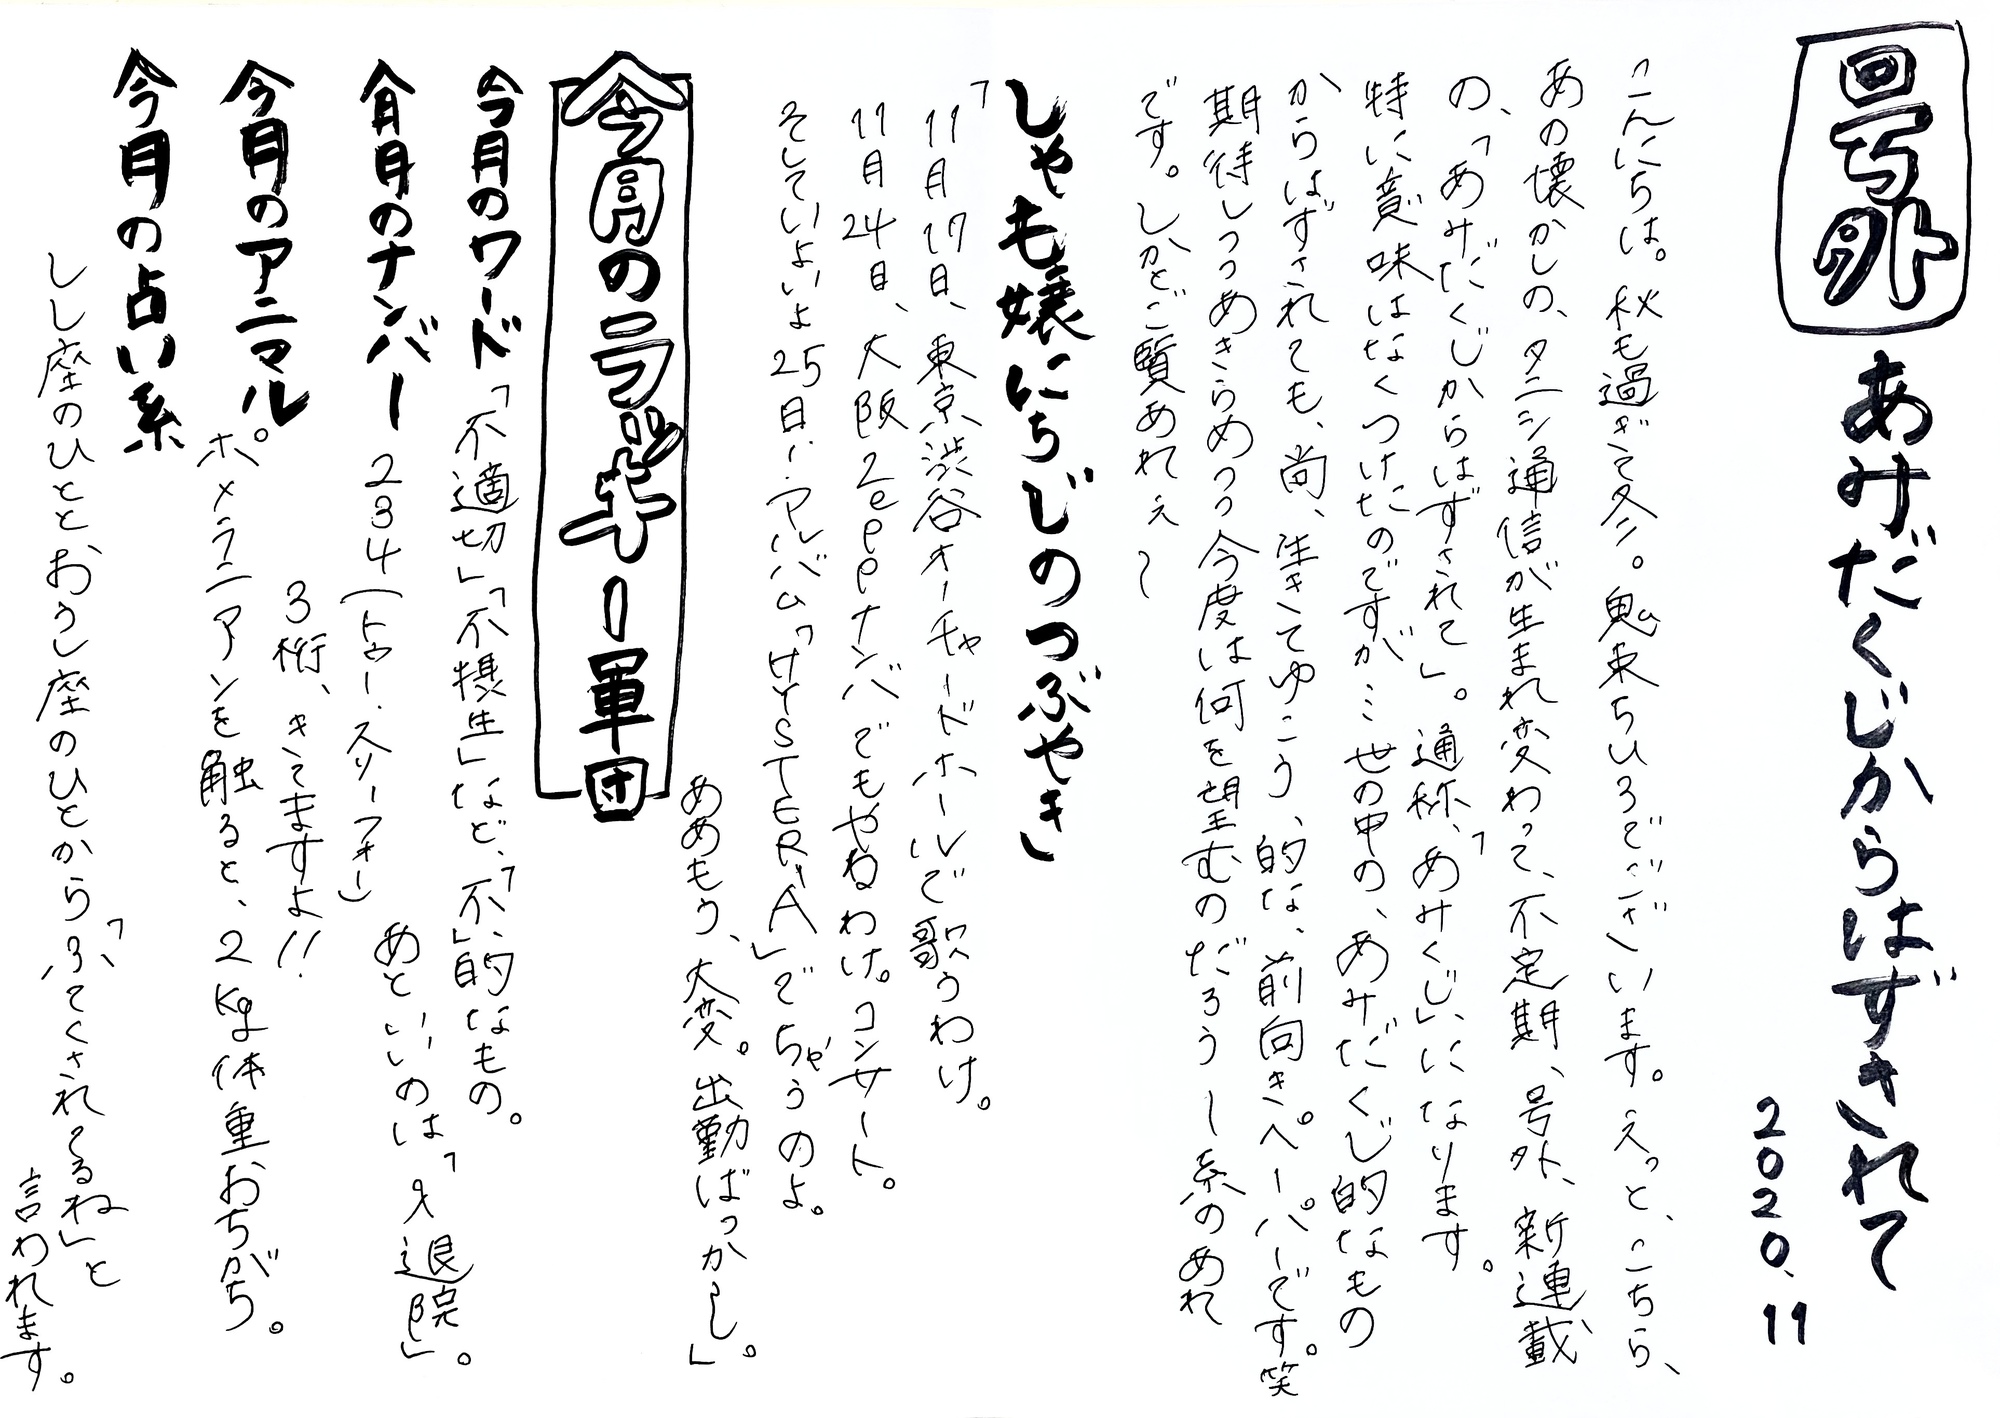 号外
あみだくじからはずされて
2020.11
こんにちは。秋も過ぎて冬。鬼束ちひろでございます。えっと、こちら、
あの懐かしの、タニシ通信が生まれ変わって、不定期、号外、新連載
の、「あみだくじからはずされて」。通称、「あみくじ」になります。
特に意味はなくつけたのですが…世の中の、あみだくじ的なもの
からはずされても、尚、生きてゆこう、的な、前向きペーパーです。笑
期待しつつあきらめつつ今度は何を望むのだろうー系のあれ
です。しかとご覧あれぇ〜
しゃも嬢にちじのつぶやき
「11月17日、東京渋谷オーチャードホールで歌うわけ。
11月24日、大阪Zeppナンバでもやるわけ。コンサート。
そしていよいよ25日に、アルバム「HYSTERIA」でちゃうのよ。
あめもう、大変。出勤ばっかし」。
今月のラッキー軍団
今月のワード「不適切」「不摂生」など、「不」的なもの。
あといいのは「入退院」。
今月のナンバー 234(トゥー・スリーフォー)
3桁、きてますよ!!
今月のアニマル ポメラニアンを触ると、2kg体重おちがち。
今月の占い系
しし座のひととおうし座のひとから「ふてくされてるね」と
言われます。